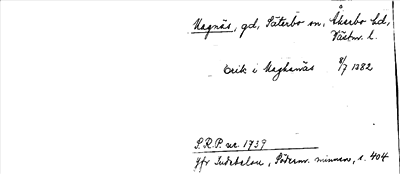 Magnäs, gd, Säterbo sn, Åkerbo hd,
Västm. l.
Erik i Maghanäs 8/7 1382
S.R.P. nr 1739
Jfr Indebetou, Söderm. minnen, s. 404